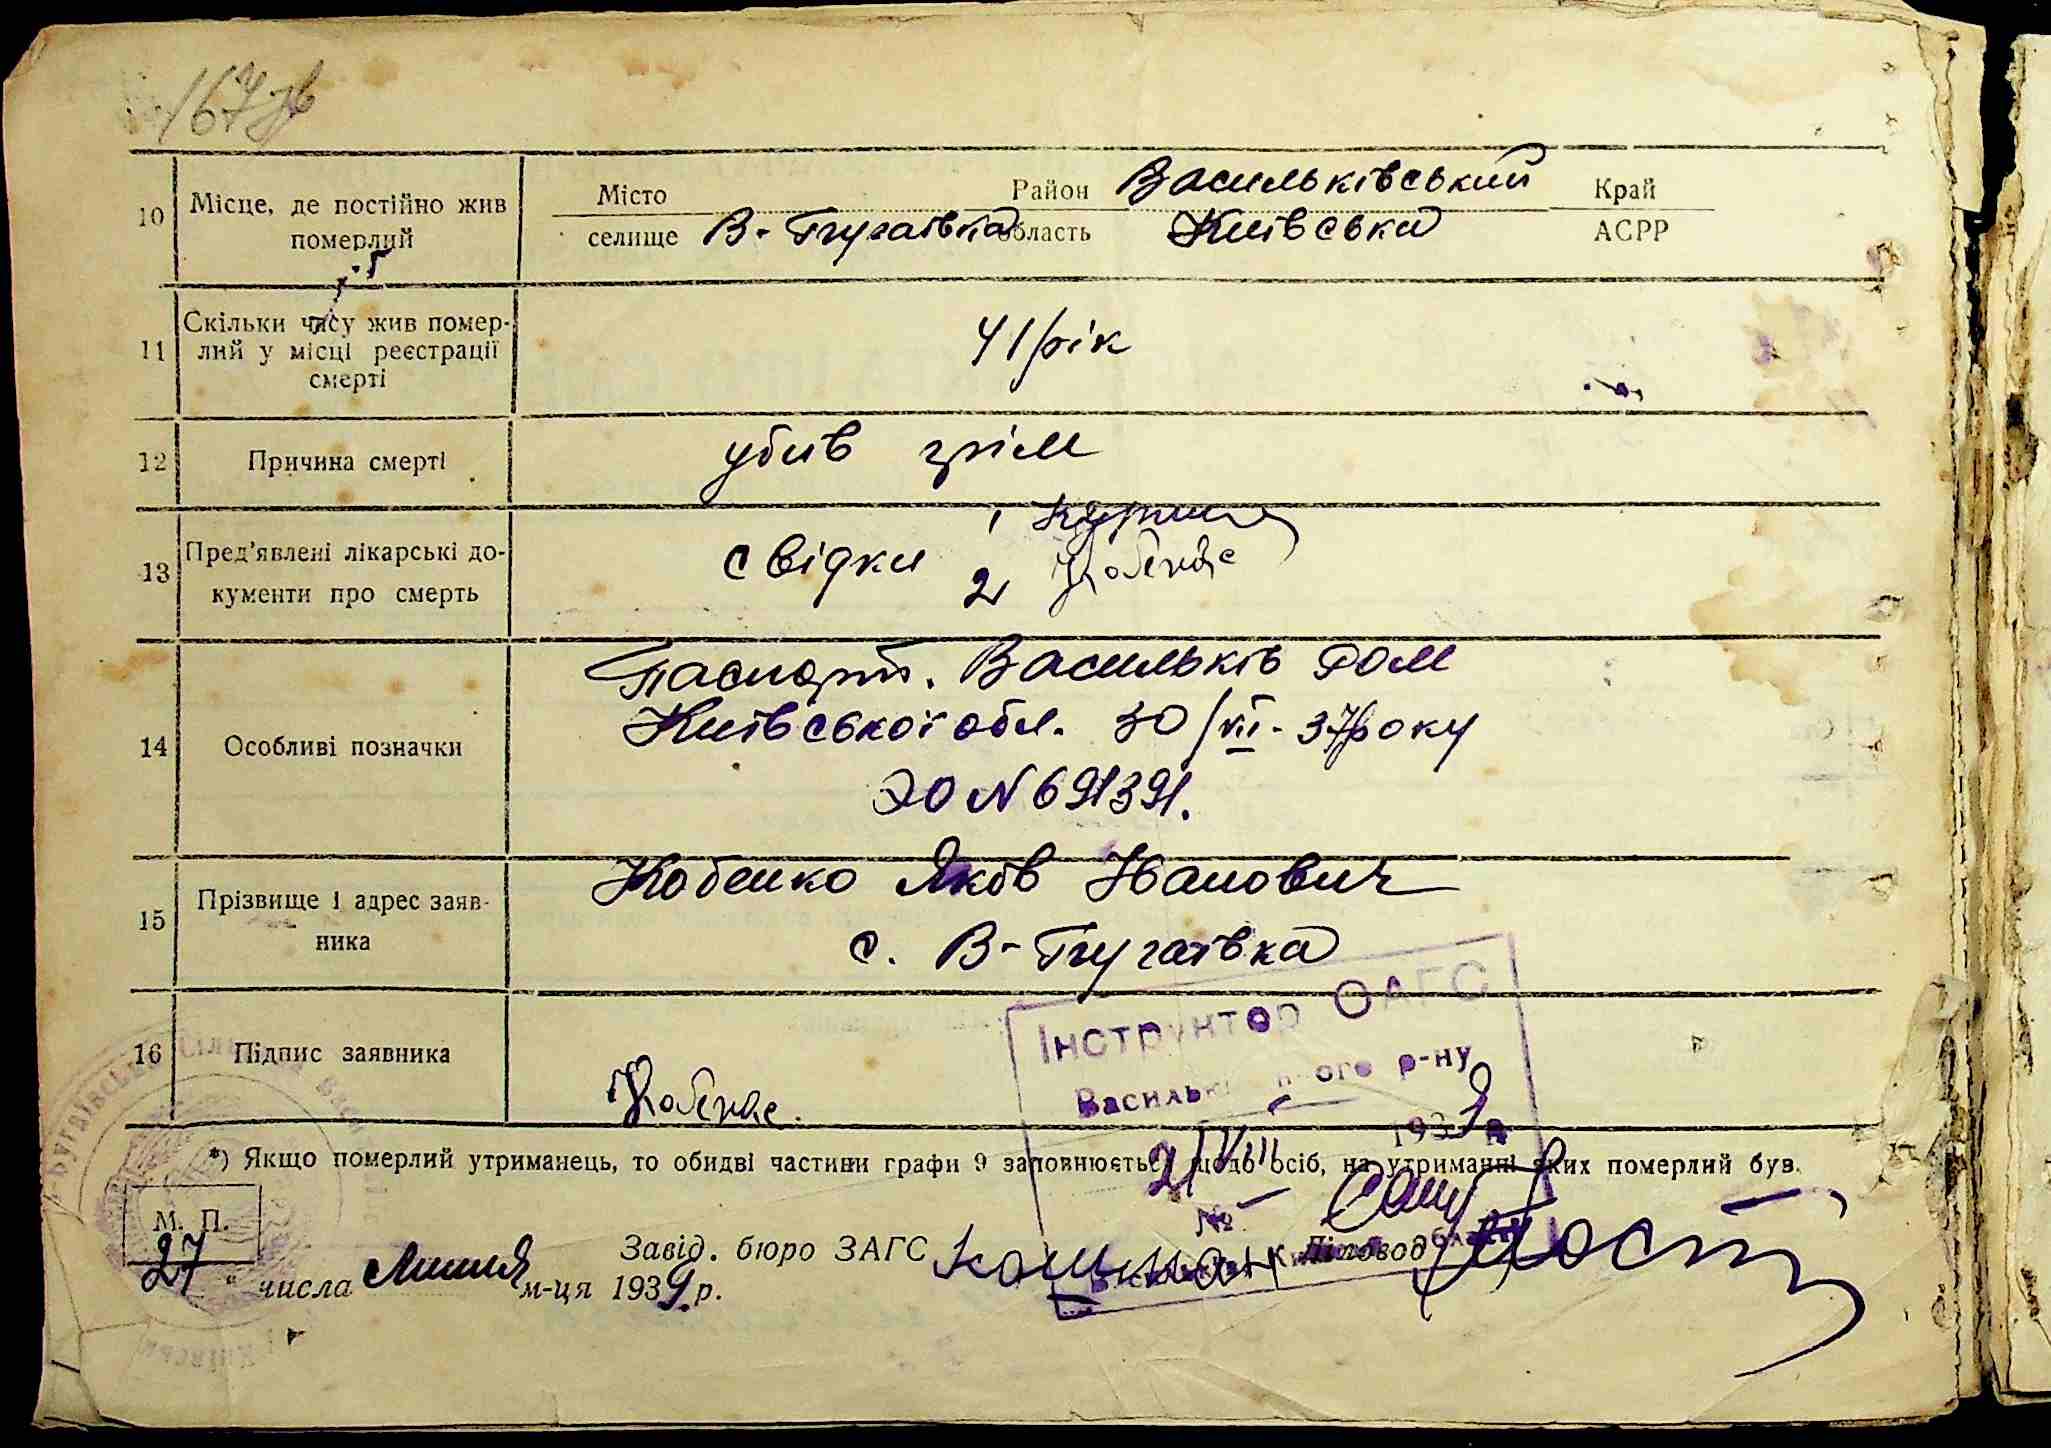 167 зв
10 Місце, де постійно жив померлий
Місто Район Васильківський Край
селище В-Бугаївка область Київська АСРР
11 Скільки часу жив помер-
лий у місці реєстрації
смерті
41 рік
12 Причина смерті убив грім
13 Пред'явлені лікарські до-
кументи про смерть
свідки 1
2 Кобенко
14 Особливі позначки
Паспорт. Васильків РОМ
Київської обл. 30/VII-37 року
ЭО N 691391.
15 Прізвище і адрес заяв-
ника
Кобенко Яков Іванович
с. В-Бугаївка
16 Підпис заявника
Кобенко.
Інструктор ОАГС
Васильківського р-ну
21/VIII 1939 р
№
*) Якщо померлий утриманець, то обидві частини графи 9 заповнюється щодо осіб, на утриманні яких померлий був.
М. П.
Завід. бюро ЗАГС Діловод
27 " числа Липня м-ця 1939 р.